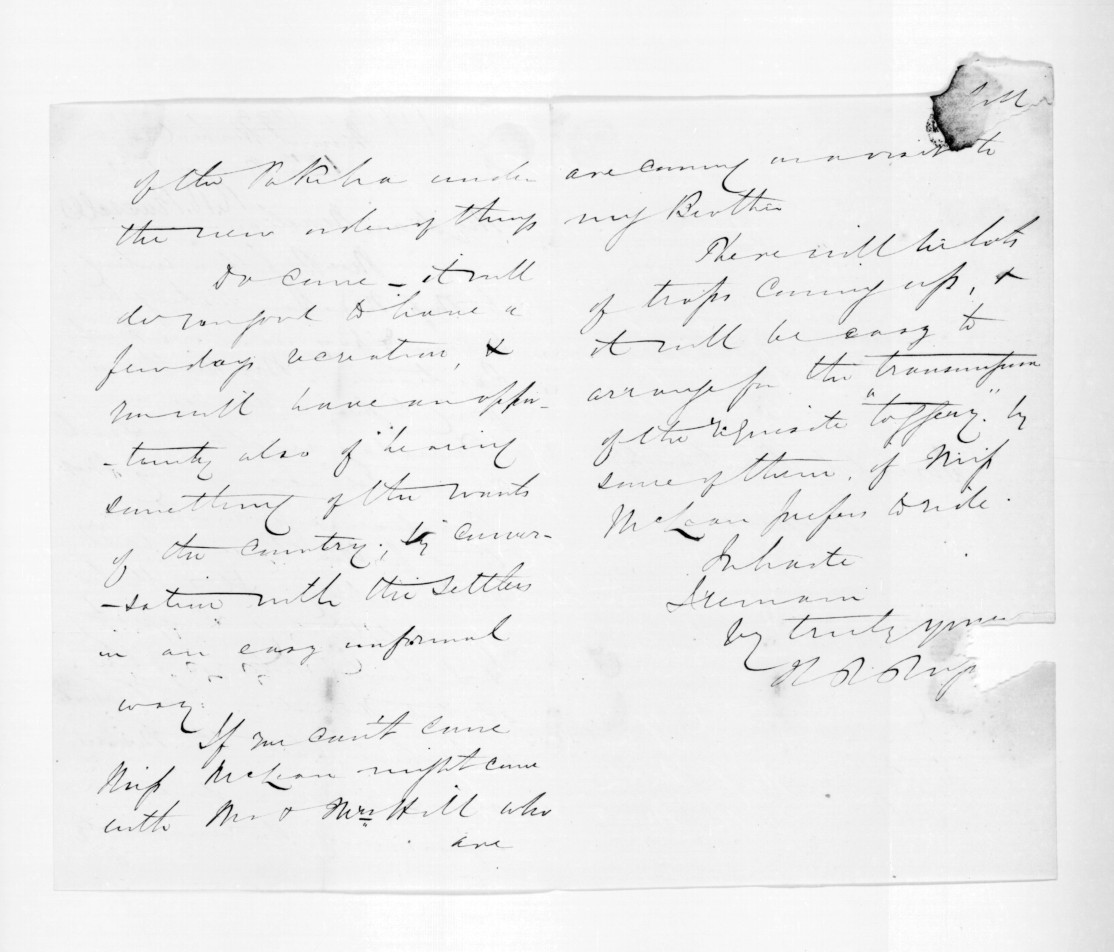 of the Pakeha under
the new order of things
Do come - it will
do you good to have a
few days recreation, &
you will have an oppor-
-tunity also of hearing
something of the wants
of the country, by conver-
-sation with the settlers
in an easy informal
way.
If you can't come
Miss McLean might come
with Mr & Mrs Hill who
are
are coming on a visit to
my Brother
There will be lots
of traps coming up, &
it will be easy to
arrange for the transmission
of the requisite "toggery" by
some of them, if Miss
McLean prefers to ride.
In haste
I remain
Vy truly yours